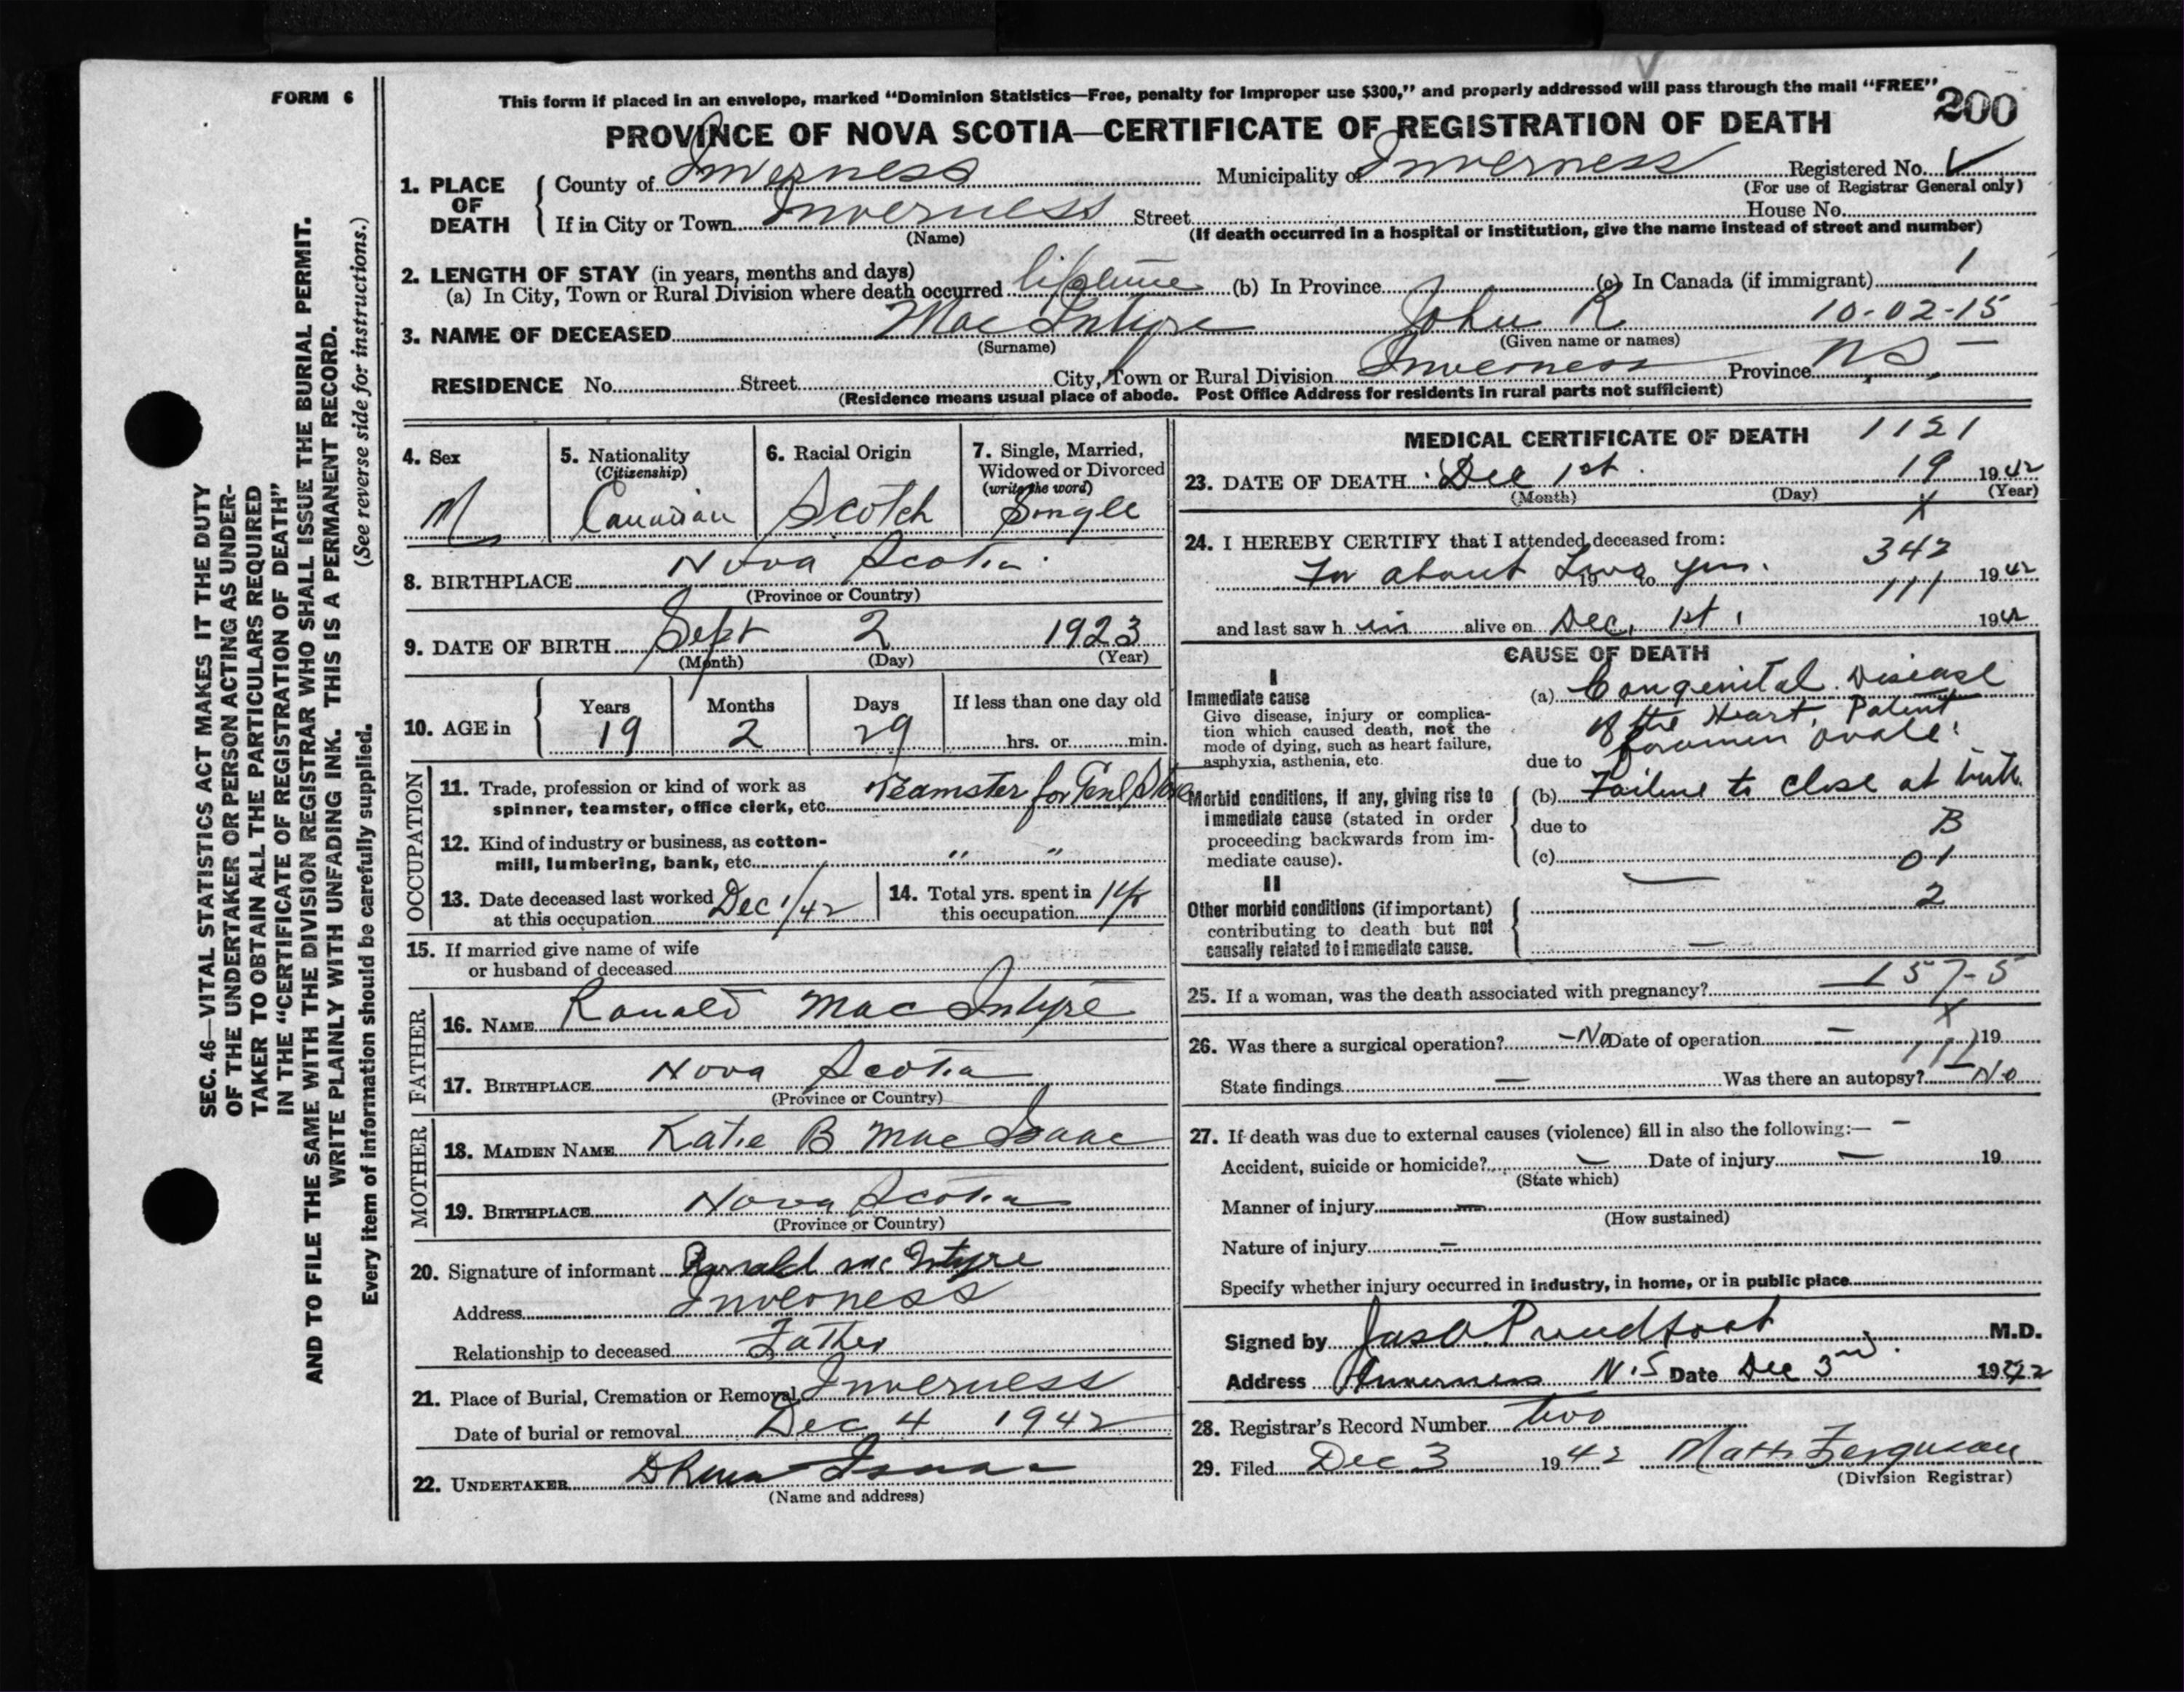 FORM 6
This form if placed in an envelope, marked "Dominion Statistics—Free, penalty for improper use $300," and properly addressed will pass through the mail "FREE"
200
PROVINCE OF NOVA SCOTIA—CERTIFICATE OF REGISTRATION OF DEATH
1. PLACE OF DEATH
County of Inverness Municipality of Inverness Registered No. ✓
(For use of Registrar General only)
If in City or Town Inverness Street House No.
(Name) (If death occurred in a hospital or institution, give the name instead of street and number)
2. LENGTH OF STAY (in years, months and days)
(a) In City, Town or Rural Division where death occurred lifetime (b) In Province (c) In Canada (if immigrant) 1
3. NAME OF DECEASED MacIntyre John R 10-02-15
(Surname) (Given name or names)
RESIDENCE No. Street City, Town or Rural Division Inverness Province N.S. —
(Residence means usual place of abode. Post Office Address for residents in rural parts not sufficient)
4. Sex
M
5. Nationality
(Citizenship)
Canadian
6. Racial Origin
Scotch
7. Single, Married,
Widowed or Divorced
(write the word)
Single
8. BIRTHPLACE Nova Scotia
(Province or Country)
9. DATE OF BIRTH Sept 2 1923
(Month) (Day) (Year)
10. AGE in
Years Months Days If less than one day old
19 2 29 hrs. or min.
OCCUPATION
11. Trade, profession or kind of work as
spinner, teamster, office clerk, etc. Teamster for Genl Store
12. Kind of industry or business, as cotton-
mill, lumbering, bank, etc. " "
13. Date deceased last worked
at this occupation Dec 1/42
14. Total yrs. spent in
this occupation
15. If married give name of wife
or husband of deceased
FATHER
16. NAME Ronald MacIntyre
17. BIRTHPLACE Nova Scotia
(Province or Country)
MOTHER
18. MAIDEN NAME Katie B MacIsaac
19. BIRTHPLACE Nova Scotia
(Province or Country)
20. Signature of informant Ronald McIntyre
Address Inverness
Relationship to deceased Father
21. Place of Burial, Cremation or Removal Inverness
Date of burial or removal Dec 4 1942
22. UNDERTAKER
(Name and address)
MEDICAL CERTIFICATE OF DEATH 1121
23. DATE OF DEATH Dec 1st 19 1942
(Month) (Day) (Year)
X
24. I HEREBY CERTIFY that I attended deceased from:
342
For about Two yrs. 19 to 1942
111
and last saw h im alive on Dec. 1st, 1942
CAUSE OF DEATH
I
Immediate cause
Give disease, injury or complica-
tion which caused death, not the
mode of dying, such as heart failure,
asphyxia, asthenia, etc.
(a) Congenital Disease
of the Heart, Patent
foramen ovale.
due to
Morbid conditions, if any, giving rise to
immediate cause (stated in order
proceeding backwards from im-
mediate cause).
(b) Failure to close at birth
due to B
(c) 01
II
Other morbid conditions (if important)
contributing to death but not
causally related to immediate cause.
— 2
—
25. If a woman, was the death associated with pregnancy? 157-5
X
26. Was there a surgical operation? — No Date of operation — 19
111
State findings — Was there an autopsy? No
27. If death was due to external causes (violence) fill in also the following:— —
Accident, suicide or homicide? — Date of injury — 19
(State which)
Manner of injury —
(How sustained)
Nature of injury —
Specify whether injury occurred in industry, in home, or in public place
Signed by Jas O Proudfoot M.D.
Address Inverness N.S Date Dec 3rd. 1942
28. Registrar's Record Number two
29. Filed Dec 3 1942 Matt Ferguson
(Division Registrar)
SEC. 46—VITAL STATISTICS ACT MAKES IT THE DUTY
OF THE UNDERTAKER OR PERSON ACTING AS UNDER-
TAKER TO OBTAIN ALL THE PARTICULARS REQUIRED
IN THE "CERTIFICATE OF REGISTRATION OF DEATH"
AND TO FILE THE SAME WITH THE DIVISION REGISTRAR WHO SHALL ISSUE THE BURIAL PERMIT.
WRITE PLAINLY WITH UNFADING INK. THIS IS A PERMANENT RECORD.
Every item of information should be carefully supplied. (See reverse side for instructions.)